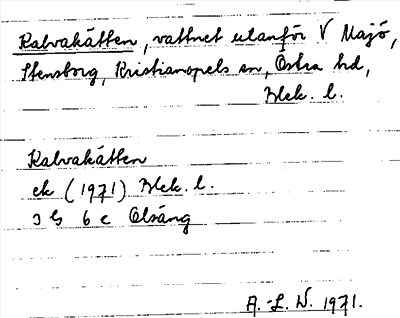 Kalvakätten, vattnet utanför V Majö,
Stensborg, Kristianopels sn, Östra hd,
Blek. l.
Kalvakätten
ek (1971) Blek. l.
3 G 6 c Olsäng
A.-L. N. 1971.